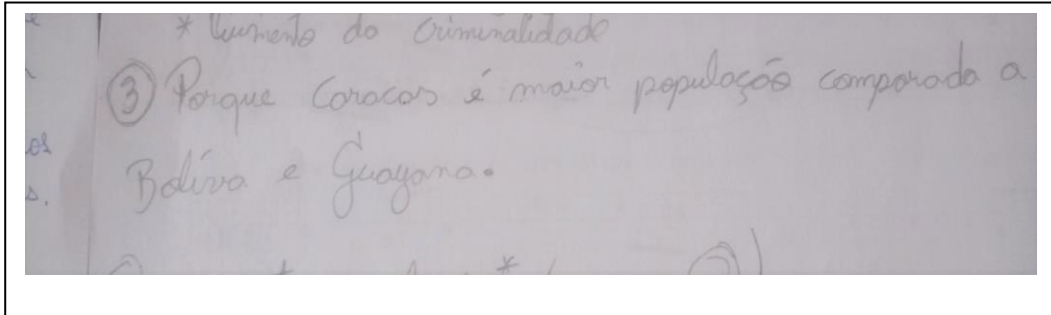 * Aumento da criminalidade
③ Porque Caracas é maior população comparada a
os
Bolíva e Guayana.
s.